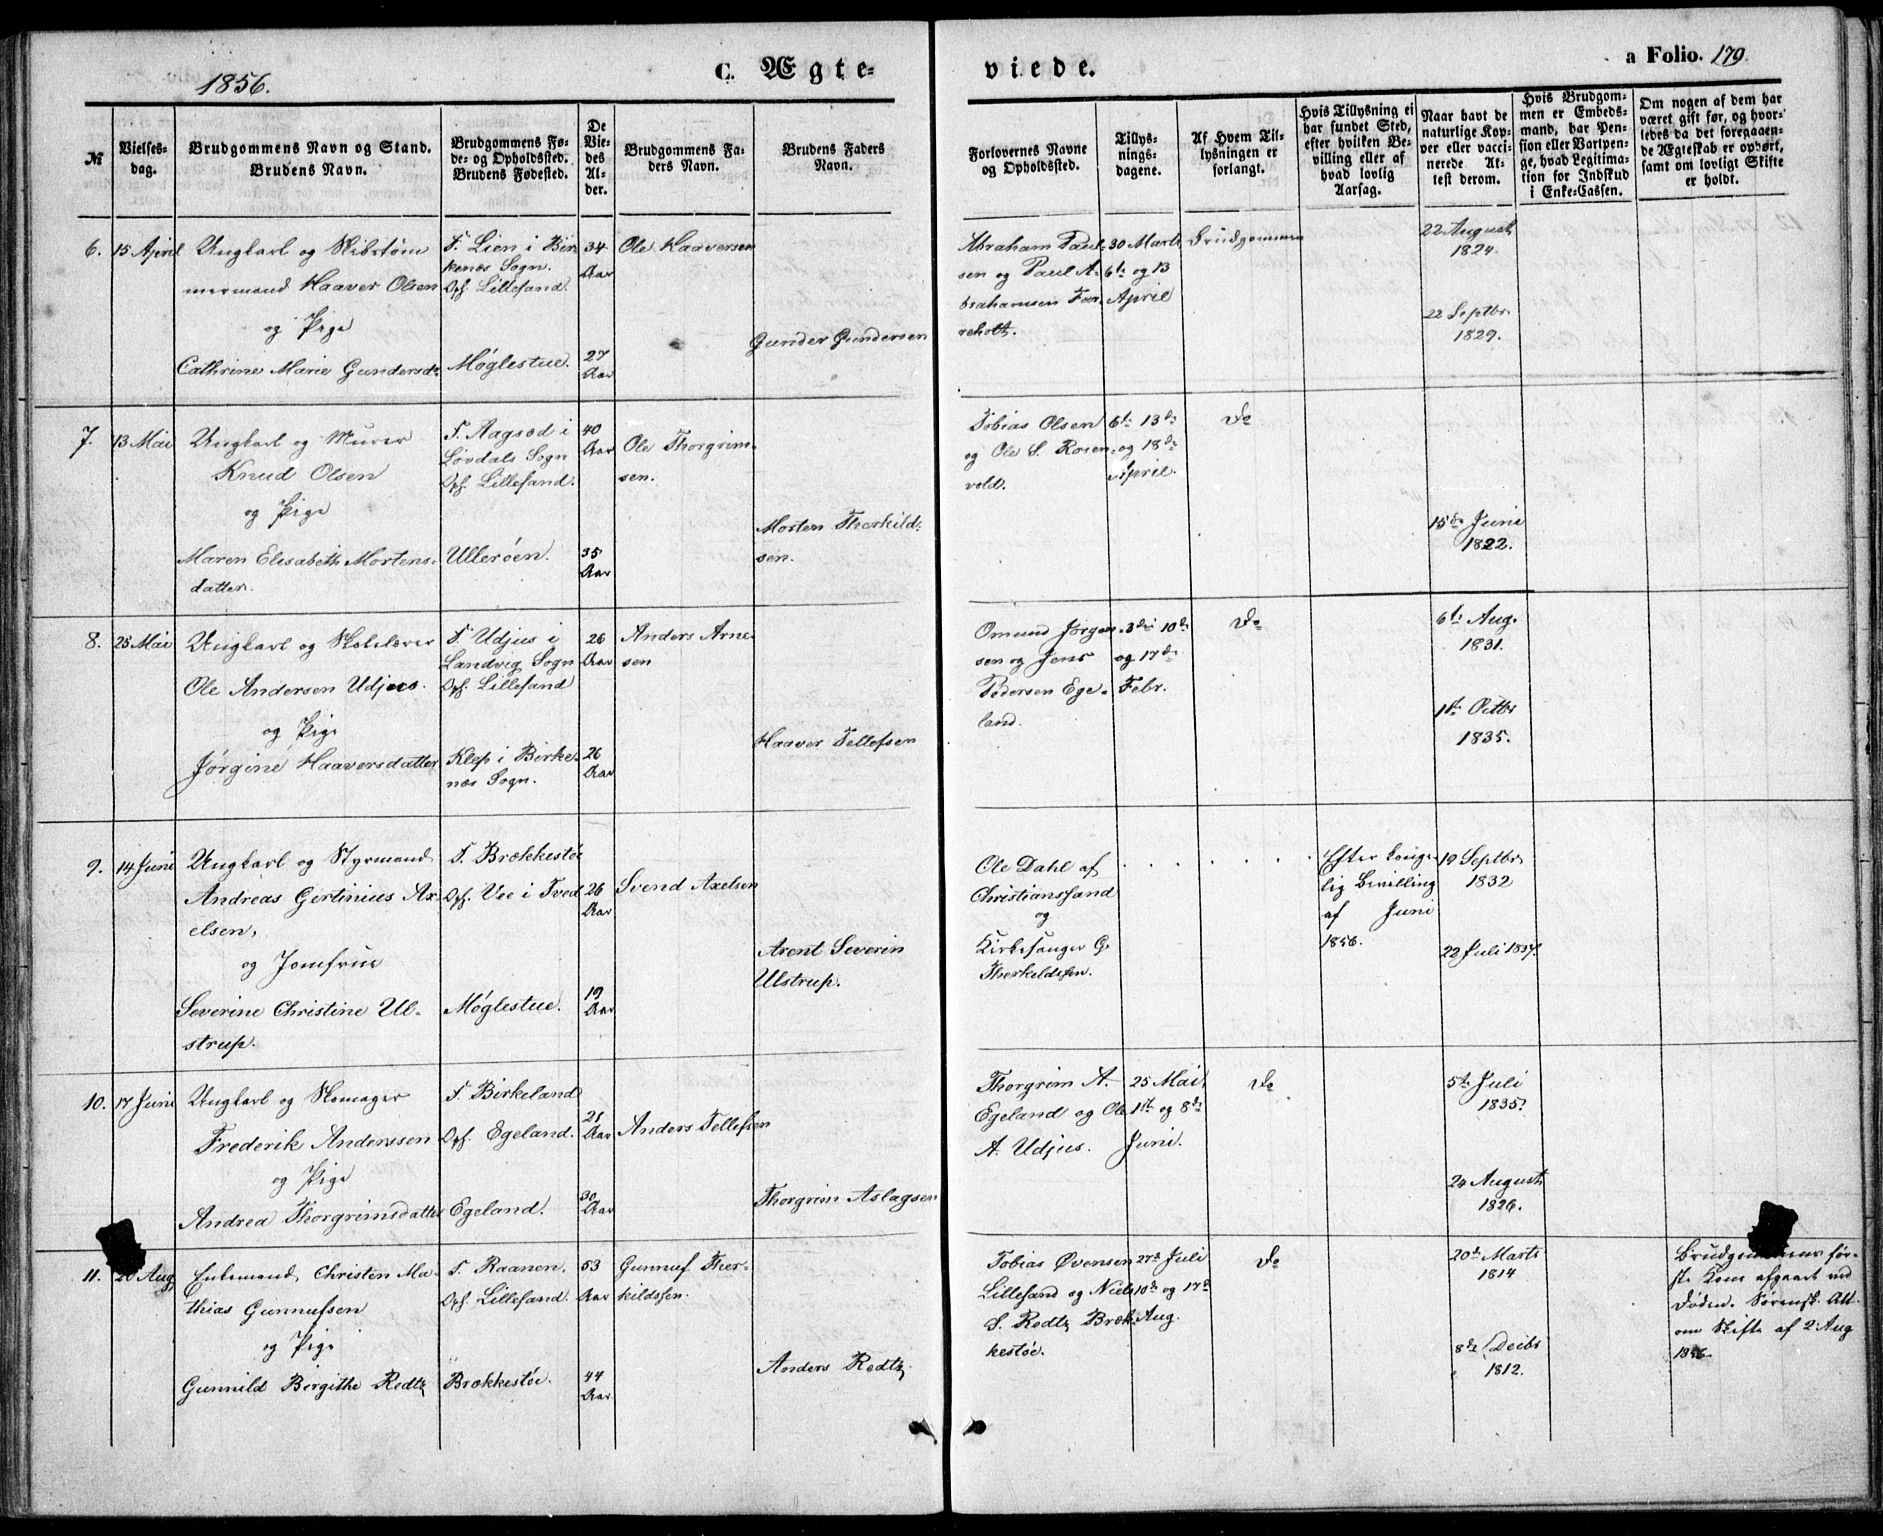 1856.
C. Ægte-
viede.
a Folio. 179.
№
Vielses-
dag.
Brudgommens Navn og Stand.
Brudens Navn.
Brudgommens Fø-
de- og Opholdssted.
Brudens Fødested.
De
Vie-
des
Al-
der.
Brudgommens Fa-
ders Navn.
Brudens Faders
Navn.
Forlovernes Navne
og Opholdssted.
Tillys-
nings-
dagene.
Af Hvem Til-
lysningen er
forlangt.
Hvis Tillysning ei
har fundet Sted,
efter hvilken Be-
villing eller af
hvad lovlig
Aarsag.
Naar havt de
naturlige Kop-
per eller vacci-
nerede At-
test derom.
Hvis Brudgom-
men er Embeds-
mand, har Pen-
sion eller Vartpen-
ge, hvad Legitima-
tion for Indskud
i Enke-Cassen.
Om nogen af dem har
været gift før, og hvor-
ledes da det foregaaen-
de Ægteskab er ophørt,
samt om lovligt Skifte
er holdt.
6. 15 April
Ungkarl og Skibstøm
mermand Haaver Olsen
og Pige
Cathrine Marie Gundersdr
F. Lien i Bir
kenes Sogn.
Opf. Lillesand.
Møglestue.
34
Aar
27
Aar
Ole Haaversen
Gunder Gundersen
Abraham Paul-
sen og Paul A-
brahamsen Fur-
reholt.
30 Marts
6te og 13
April
Brudgommen
22 August
1824.
22 Septbr
1829.
7. 13 Mai
Ungkarl og Murer
Knud Olsen
og Pige
Maren Elisabeth Mortens-
datter.
F. Aagsod i
Løvdals Sogn
Opf. Lillesand.
Ulleröen.
40
Aar
35
Aar
Ole Thorgrim-
sen.
Morten Therkild-
sen.
Tobias Olsen
og Ole S. Rosen-
vold.
6te 13de
og 18de
April.
Do
15de Juni
1822.
8. 25 Mai
Ungkarl og Skolelærer
Ole Andersen Udjus.
og Pige
Jørgine Haaversdatter
F. Udjus i
Landvig Sogn
Opf. Lillesand
Klep i Birke-
nes Sogn.
26
Aar
26
Aar
Anders Arne-
sen
Haaver Tellefsen
Omund Jørgen-
sen og Jens
Pedersen Ege-
land.
3die 10de
og 17de
Febr.
Do
6te Aug.
1831.
1ste Octbr
1835.
9. 14 Juni
Ungkarl og Styrmand
Andreas Gertinius Ax-
elsen,
og Jomfrue
Severine Christine Ul-
strup.
F. Brækkestøe
Opf. Vee i Tved
Møglestue.
26
Aar
19
Aar
Svend Axelsen
Arent Severin
Ulstrup.
Ole Dahl af
Christianssand
og
Kirkesanger G.
Therkeldssen.
Efter konge-
lig Bevilling
af Juni
1856.
19 Septbr
1832
22 Juli 1837.
10. 17 Juni
Ungkarl og Skomager
Frederik Anderssen
og Pige
Andrea Thorgrimsdatter
F. Birkeland
Opf. Egeland.
Egeland.
Aar
30
Aar
Anders Tellefsen
Thorgrim Aslagsen
Thorgrim A.
Egeland og Ole
A. Udjus.
25 Mai
1ste og 8de
Juni.
Do
5te Juli
1835.
24 August
1826.
11. 20 Aug
Enkemand, Christen Ma-
thias Gunnufsen
og Pige
Gunnild Birgithe Redtz
F. Raanen.
Opf. Lillesand.
Brækkestøe.
53
Aar
44
Aar
Gunnuf Ther-
kildssen.
Anders Redtz.
Tobias Øvensen
Lillesand og Niels
S. Redtz Bræk-
kestøe.
27de Juli
10de og 17de
Aug.
Do
20de Marts
1814
8de Decbr
1812.
Brudgommens før-
ste Kone afgaaet ved
Døden. Sørensk. Att.
om Skifte af 2 Aug
1856.